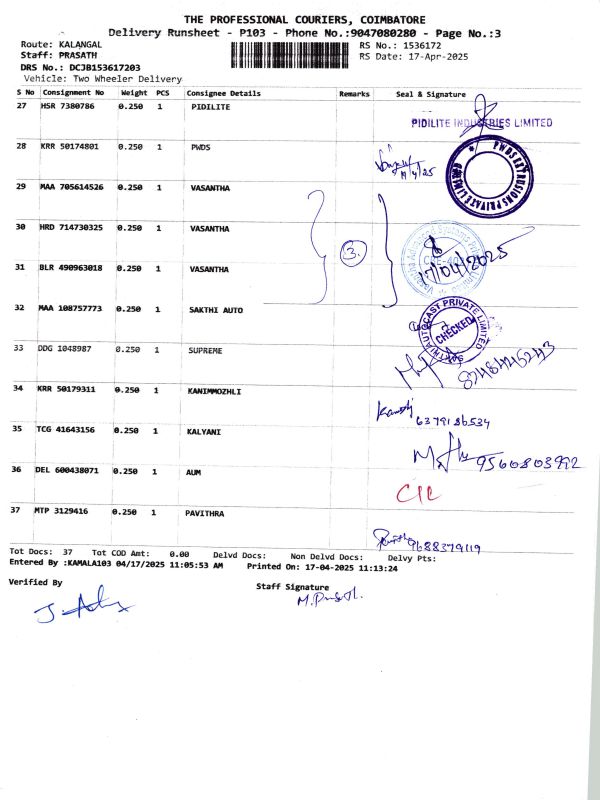 THE PROFESSIONAL COURIERS, COIMBATORE
Delivery Runsheet - P103 - Phone No.:9047080280 - Page No.:3
Route: KALANGAL RS No.: 1536172
Staff: PRASATH RS Date: 17-Apr-2025
DRS No.: DCJB153617203
Vehicle: Two Wheeler Delivery
S No Consignment No Weight PCS Consignee Details Remarks Seal & Signature
27 HSR 7380786 0.250 1 PIDILITE
PIDILITE INDUSTRIES LIMITED
28 KRR 50174801 0.250 1 PWDS
PWDS EXTRUSIONS PRIVATE LIMITED
29 MAA 705614526 0.250 1 VASANTHA
30 HRD 714730325 0.250 1 VASANTHA
3
17/04/2025
31 BLR 490963018 0.250 1 VASANTHA
32 MAA 108757773 0.250 1 SAKTHI AUTO
SAKTHI AUTOCAST PRIVATE LIMITED
CHECKED
33 DDG 1048987 0.250 1 SUPREME
34 KRR 50179311 0.250 1 KANIMMOZHLI
6379186534
35 TCG 41643156 0.250 1 KALYANI
9560803992
36 DEL 600438071 0.250 1 AUM
37 MTP 3129416 0.250 1 PAVITHRA
9688379119
Tot Docs: 37 Tot COD Amt: 0.00 Delvd Docs: Non Delvd Docs: Delvy Pts:
Entered By :KAMALA103 04/17/2025 11:05:53 AM Printed On: 17-04-2025 11:13:24
Verified By Staff Signature